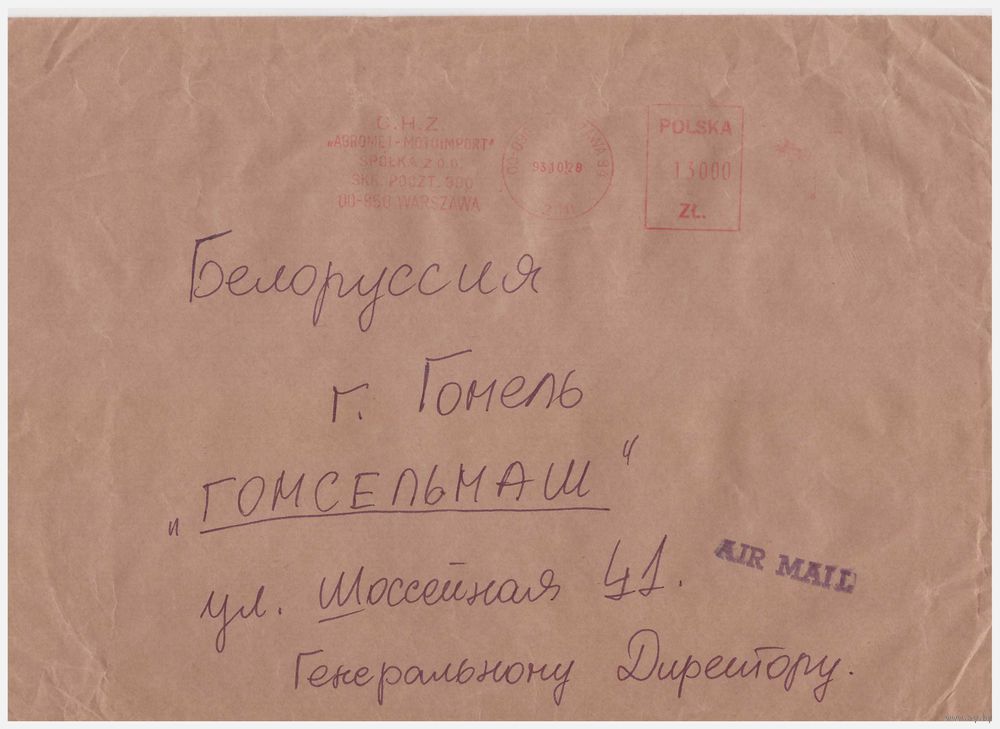 C.H.Z.
„AGROMET-MOTOIMPORT”
SPÓŁKA Z O.O.
SKR. POCZT. 990
00-950 WARSZAWA
93.10.28
POLSKA
13000
ZŁ.
Белоруссия
г. Гомель
„ГОМСЕЛЬМАШ“
ул. Шоссейная 41.
AIR MAIL
Генеральному Директору.
www.ay.by